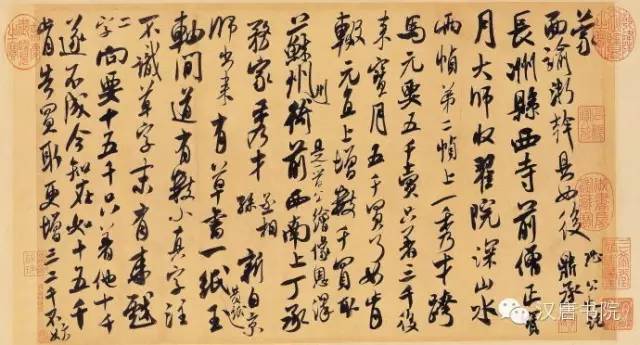 蒙
面諭浙幹具如後
長洲縣西寺前僧正寶
月大師收翟院深山水
兩幀第一幀上一秀才跨
馬元要五千賣只著三千後
來寶月五千買了如肯
輟元直上增數千買取
蘇州州衙前西南上丁承
是晉公繪像恩澤
務家秀才丞相孫新自京
師出來有草書一紙黃紙
軸間道有數小真字注
不識草字末有來戲
二字向要十五千只著他十千
遂不成今知在如十五千
肯告買取更增三二千不妨
汉唐书院